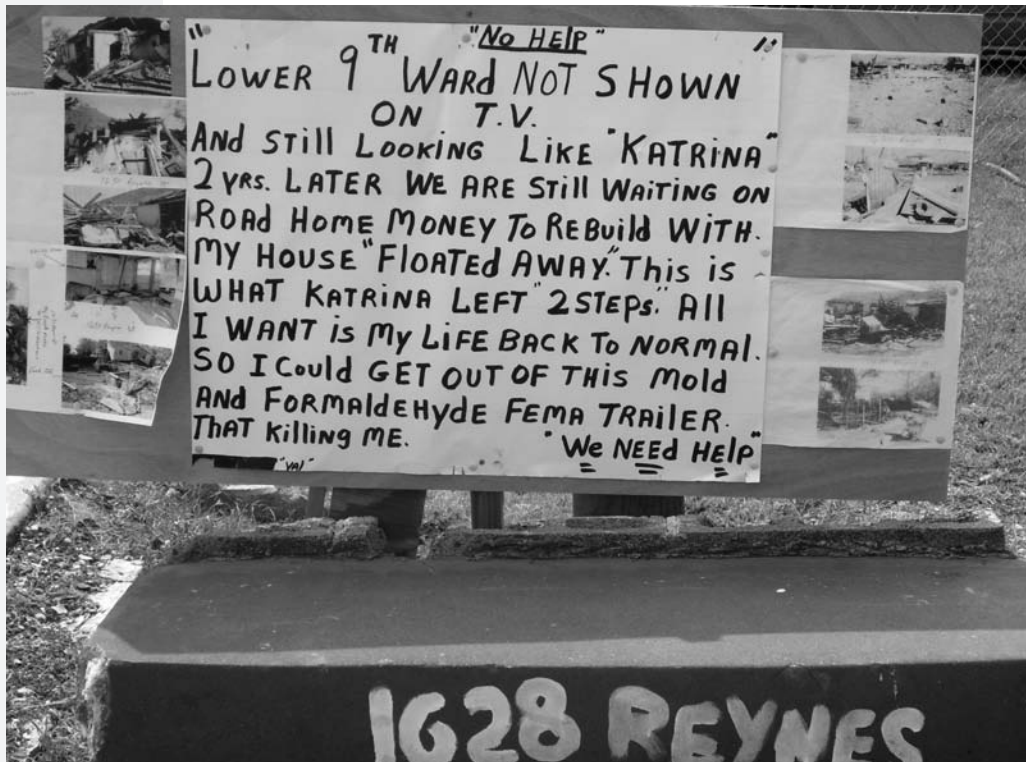 "No HELP"
LOWER 9TH WARD NOT SHOWN
ON T.V.
AND STILL LOOKING LIKE "KATRINA"
2 YRS. LATER WE ARE STILL WAITING ON
ROAD HOME MONEY TO REBUILD WITH.
MY HOUSE "FLOATED AWAY." THIS IS
WHAT KATRINA LEFT "2 STEPS." ALL
I WANT IS MY LIFE BACK TO NORMAL.
SO I COULD GET OUT OF THIS MOLD
AND FORMALDEHYDE FEMA TRAILER.
THAT KILLING ME.
"WE NEED HELP"
1628 REYNES